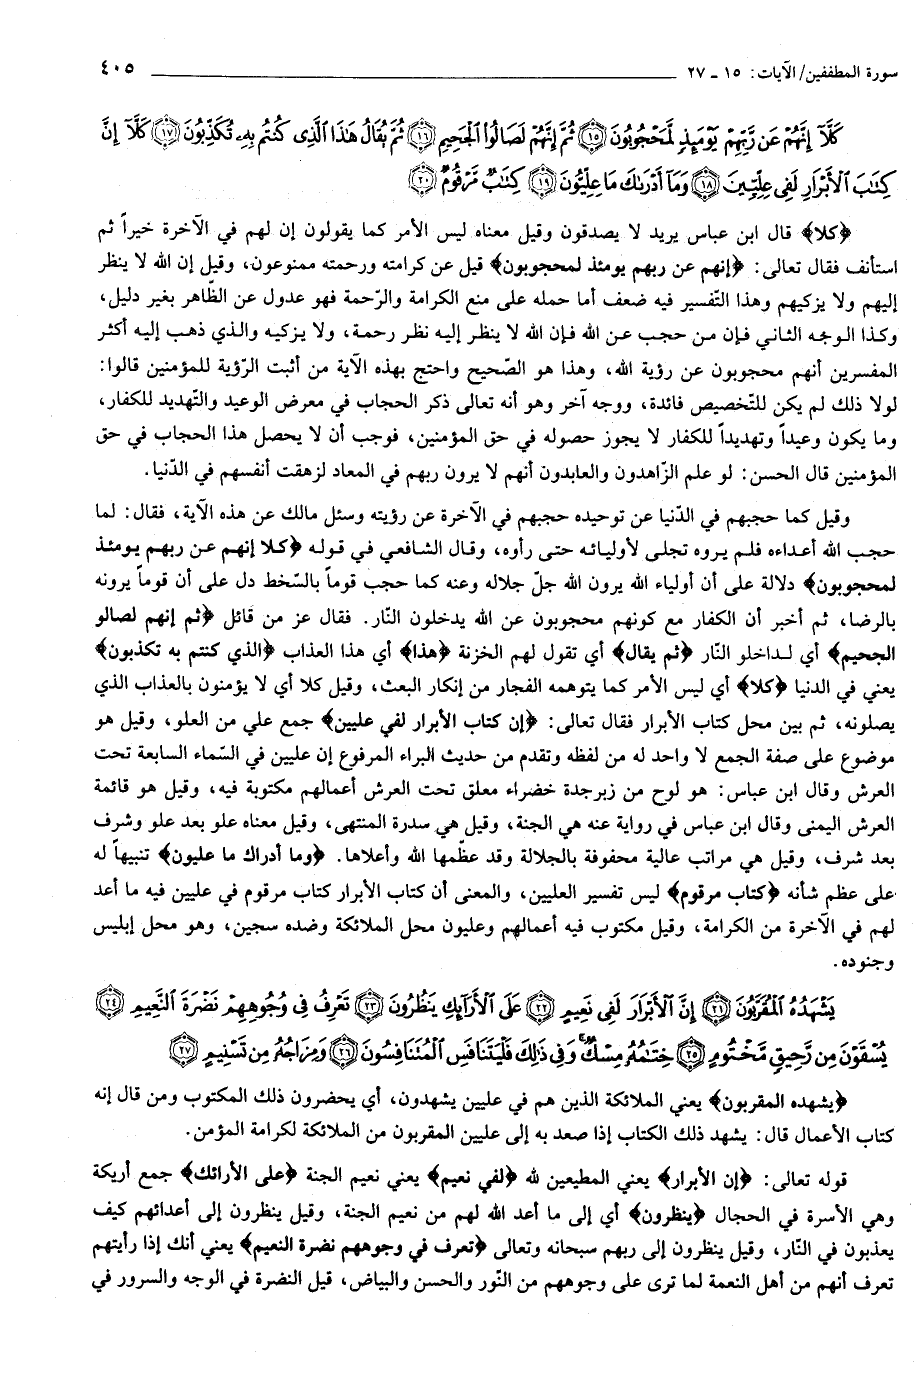 سورة المطففين/ الآيات: ١٥ - ٢٧ ٤٠٥
كَلَّآ إِنَّهُمْ عَن رَّبِّهِمْ يَوْمَئِذٍ لَّمَحْجُوبُونَ ﴿١٥﴾ ثُمَّ إِنَّهُمْ لَصَالُوا۟ ٱلْجَحِيمِ ﴿١٦﴾ ثُمَّ يُقَالُ هَٰذَا ٱلَّذِى كُنتُم بِهِۦ تُكَذِّبُونَ ﴿١٧﴾ كَلَّآ إِنَّ
كِتَٰبَ ٱلْأَبْرَارِ لَفِى عِلِّيِّينَ ﴿١٨﴾ وَمَآ أَدْرَىٰكَ مَا عِلِّيُّونَ ﴿١٩﴾ كِتَٰبٌ مَّرْقُومٌ ﴿٢٠﴾
﴿كلا﴾ قال ابن عباس يريد لا يصدقون وقيل معناه ليس الأمر كما يقولون إن لهم في الآخرة خيراً ثم
استأنف فقال تعالى: ﴿إنهم عن ربهم يومئذ لمحجوبون﴾ قيل عن كرامته ورحمته ممنوعون، وقيل إن الله لا ينظر
إليهم ولا يزكيهم وهذا التّفسير فيه ضعف أما حمله على منع الكرامة والرّحمة فهو عدول عن الظّاهر بغير دليل،
وكذا الوجه الثاني فإن من حجب عن الله فإن الله لا ينظر إليه نظر رحمة، ولا يزكيه والذي ذهب إليه أكثر
المفسرين أنهم محجوبون عن رؤية الله، وهذا هو الصّحيح واحتج بهذه الآية من أثبت الرّؤية للمؤمنين قالوا:
لولا ذلك لم يكن للتّخصيص فائدة، ووجه آخر وهو أنه تعالى ذكر الحجاب في معرض الوعيد والتّهديد للكفار،
وما يكون وعيداً وتهديداً للكفار لا يجوز حصوله في حق المؤمنين، فوجب أن لا يحصل هذا الحجاب في حق
المؤمنين قال الحسن: لو علم الزّاهدون والعابدون أنهم لا يرون ربهم في المعاد لزهقت أنفسهم في الدّنيا.
وقيل كما حجبهم في الدّنيا عن توحيده حجبهم في الآخرة عن رؤيته وسئل مالك عن هذه الآية، فقال: لما
حجب الله أعداءه فلم يروه تجلى لأوليائه حتى رأوه، وقال الشافعي في قوله ﴿كلا إنهم عن ربهم يومئذ
لمحجوبون﴾ دلالة على أن أولياء الله يرون الله جلّ جلاله وعنه كما حجب قوماً بالسّخط دل على أن قوماً يرونه
بالرضا، ثم أخبر أن الكفار مع كونهم محجوبون عن الله يدخلون النّار. فقال عز من قائل ﴿ثم إنهم لصالو
الجحيم﴾ أي لداخلو النّار ﴿ثم يقال﴾ أي تقول لهم الخزنة ﴿هذا﴾ أي هذا العذاب ﴿الذي كنتم به تكذبون﴾
يعني في الدنيا ﴿كلا﴾ أي ليس الأمر كما يتوهمه الفجار من إنكار البعث، وقيل كلا أي لا يؤمنون بالعذاب الذي
يصلونه، ثم بين محل كتاب الأبرار فقال تعالى: ﴿إن كتاب الأبرار لفي عليين﴾ جمع علي من العلو، وقيل هو
موضوع على صفة الجمع لا واحد له من لفظه وتقدم من حديث البراء المرفوع إن عليين في السّماء السابعة تحت
العرش وقال ابن عباس: هو لوح من زبرجدة خضراء معلق تحت العرش أعمالهم مكتوبة فيه، وقيل هو قائمة
العرش اليمنى وقال ابن عباس في رواية عنه هي الجنة، وقيل هي سدرة المنتهى، وقيل معناه علو بعد علو وشرف
بعد شرف، وقيل هي مراتب عالية محفوفة بالجلالة وقد عظّمها الله وأعلاها. ﴿وما أدراك ما عليون﴾ تنبيهاً له
على عظم شأنه ﴿كتاب مرقوم﴾ ليس تفسير العليين، والمعنى أن كتاب الأبرار كتاب مرقوم في عليين فيه ما أعد
لهم في الآخرة من الكرامة، وقيل مكتوب فيه أعمالهم وعليون محل الملائكة وضده سجين، وهو محل إبليس
وجنوده.
يَشْهَدُهُ ٱلْمُقَرَّبُونَ ﴿٢١﴾ إِنَّ ٱلْأَبْرَارَ لَفِى نَعِيمٍ ﴿٢٢﴾ عَلَى ٱلْأَرَآئِكِ يَنظُرُونَ ﴿٢٣﴾ تَعْرِفُ فِى وُجُوهِهِمْ نَضْرَةَ ٱلنَّعِيمِ ﴿٢٤﴾
يُسْقَوْنَ مِن رَّحِيقٍ مَّخْتُومٍ ﴿٢٥﴾ خِتَٰمُهُۥ مِسْكٌ ۚ وَفِى ذَٰلِكَ فَلْيَتَنَافَسِ ٱلْمُتَنَٰفِسُونَ ﴿٢٦﴾ وَمِزَاجُهُۥ مِن تَسْنِيمٍ ﴿٢٧﴾
﴿يشهده المقربون﴾ يعني الملائكة الذين هم في عليين يشهدون، أي يحضرون ذلك المكتوب ومن قال إنه
كتاب الأعمال قال: يشهد ذلك الكتاب إذا صعد به إلى عليين المقربون من الملائكة لكرامة المؤمن.
قوله تعالى: ﴿إن الأبرار﴾ يعني المطيعين لله ﴿لفي نعيم﴾ يعني نعيم الجنة ﴿على الأرائك﴾ جمع أريكة
وهي الأسرة في الحجال ﴿ينظرون﴾ أي إلى ما أعد الله لهم من نعيم الجنة، وقيل ينظرون إلى أعدائهم كيف
يعذبون في النّار، وقيل ينظرون إلى ربهم سبحانه وتعالى ﴿تعرف في وجوههم نضرة النعيم﴾ يعني أنك إذا رأيتهم
تعرف أنهم من أهل النعمة لما ترى على وجوههم من النّور والحسن والبياض، قيل النّضرة في الوجه والسرور في